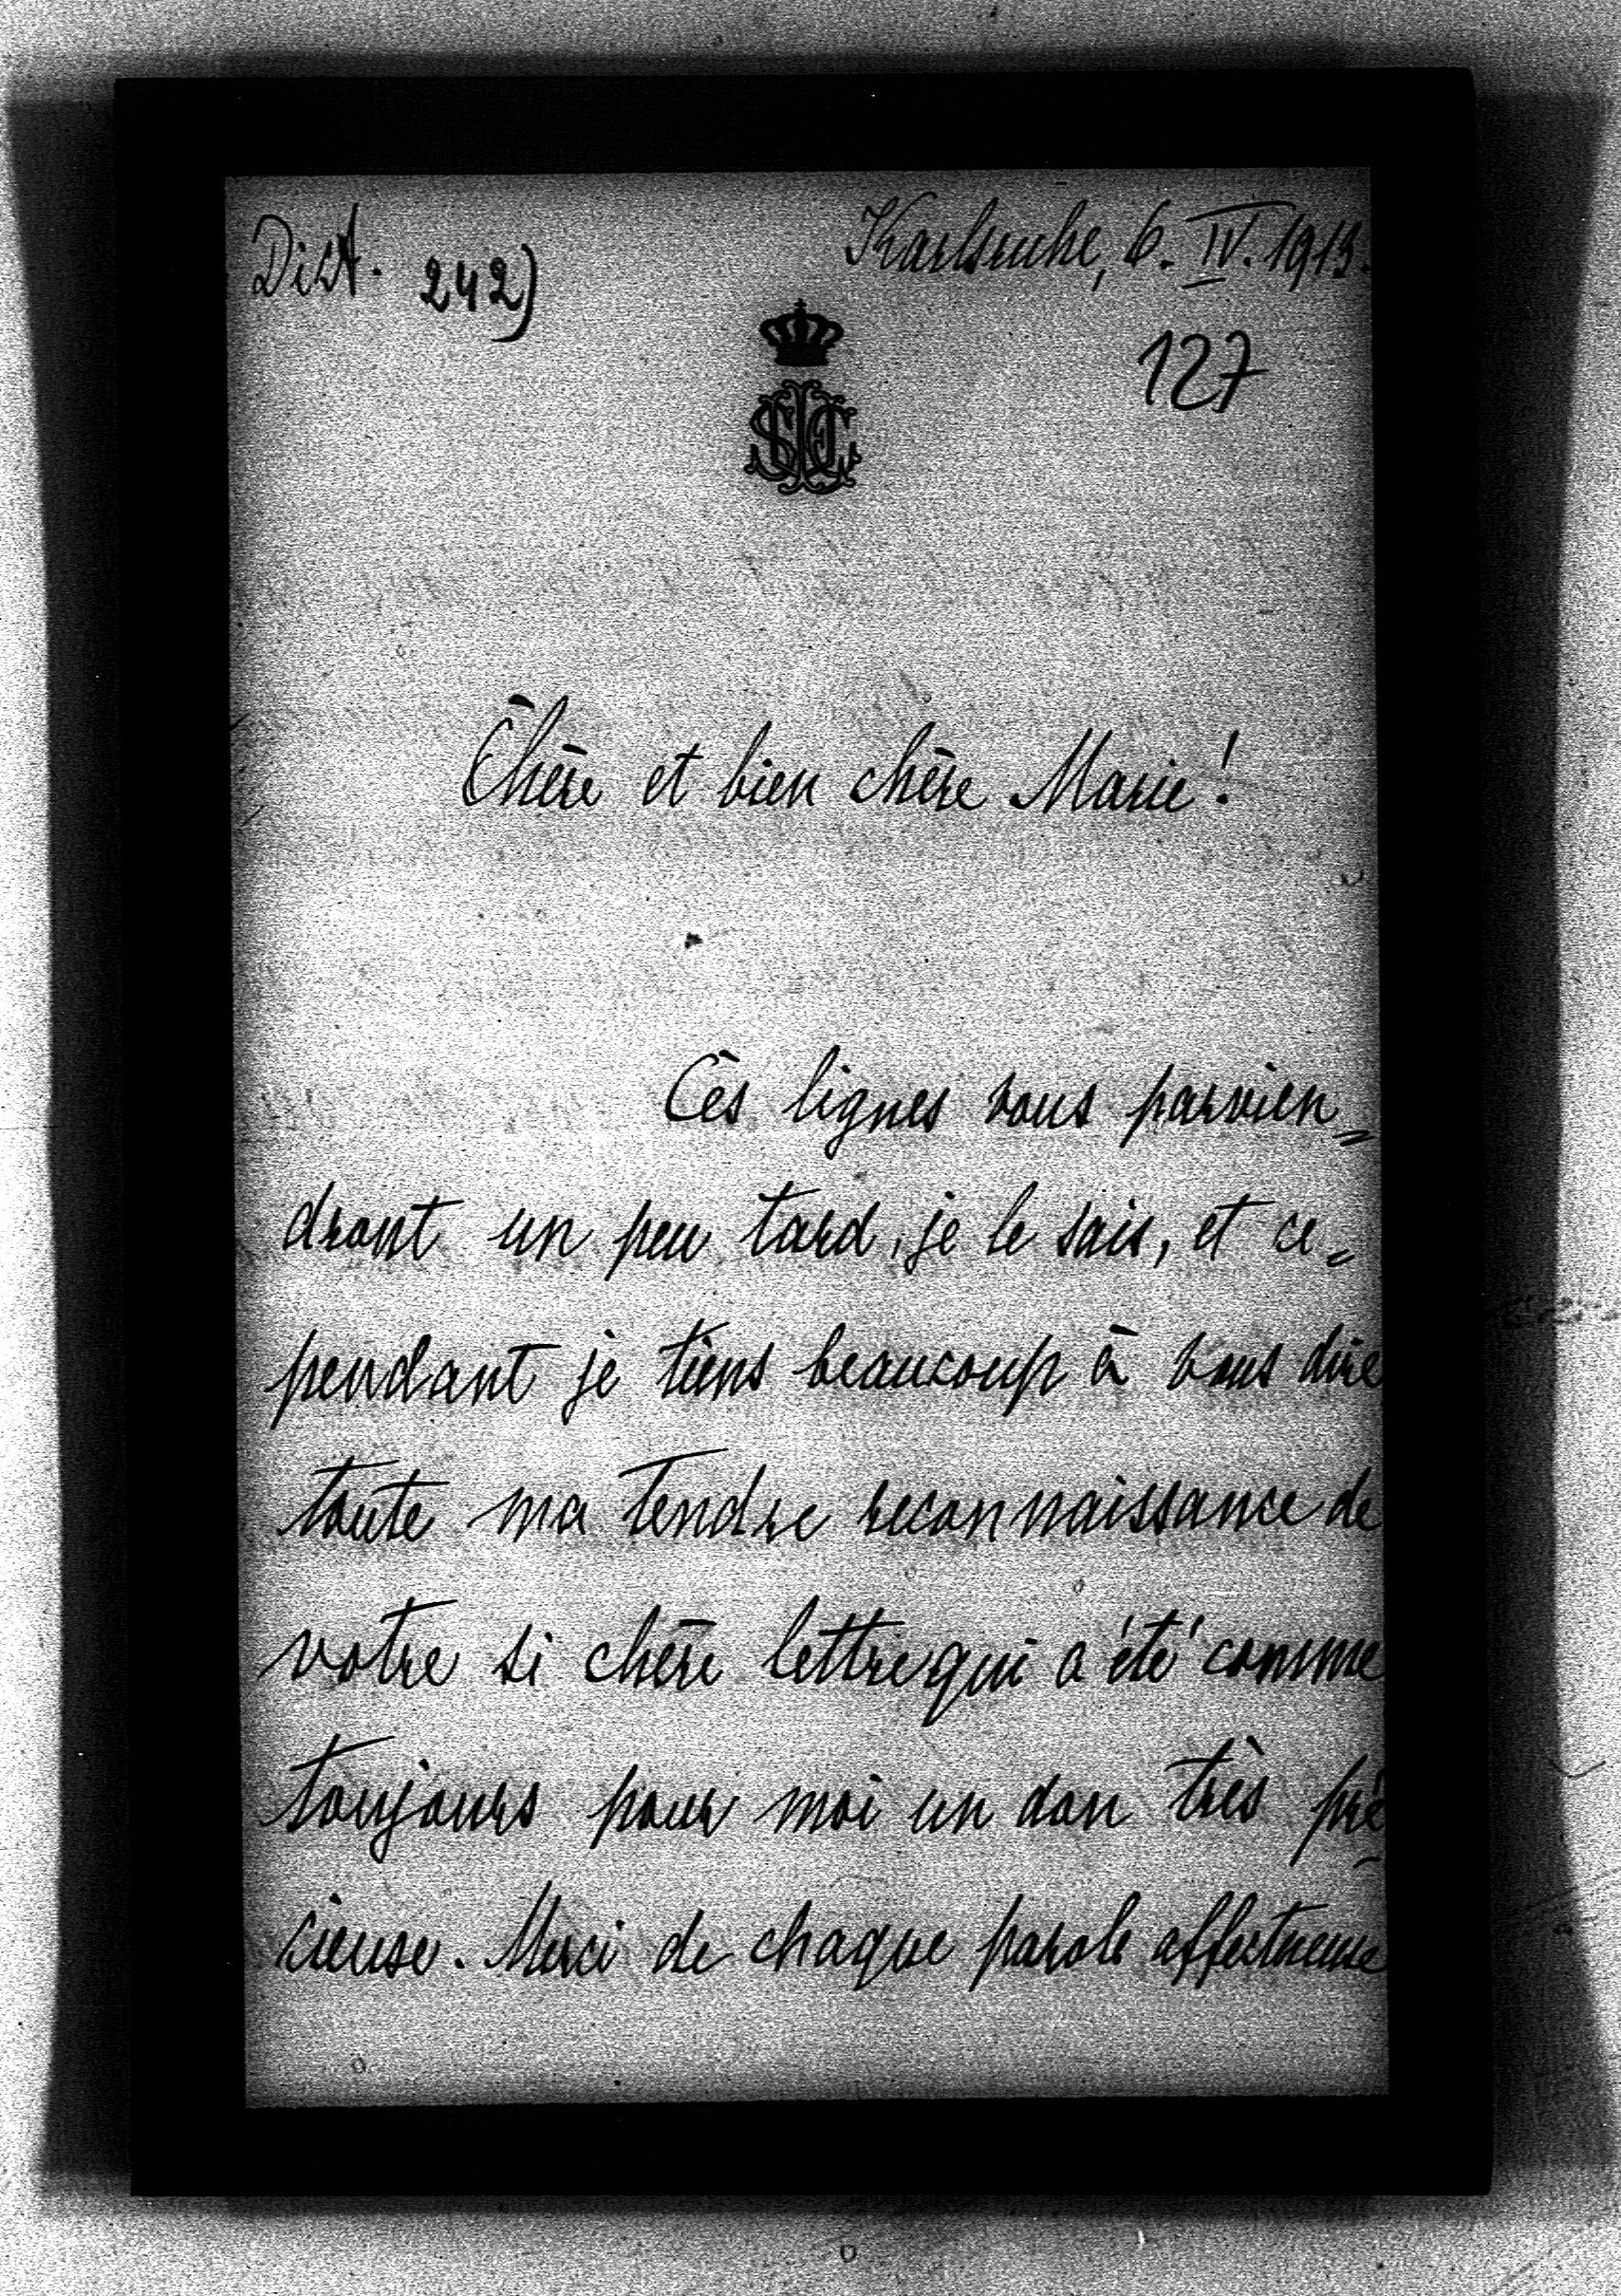 Dict. 242) Karlsruhe, 6. IV. 1913.
127
Chère et bien chère Marie!
Ces lignes vous parvien=
dront un peu tard, je le sais, et ce=
pendant je tiens beaucoup à vous dire
toute ma tendre reconnaissance de
votre si chère lettre qui a été comme
toujours pour moi un don très pré=
cieuse. Merci de chaque parole affectueuse